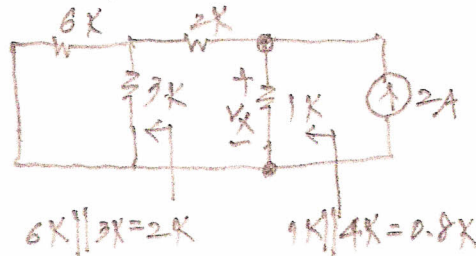 6K
2K
3K
+
Vx
-
1K
2A
6K||3K=2K
1K||4K=0.8K